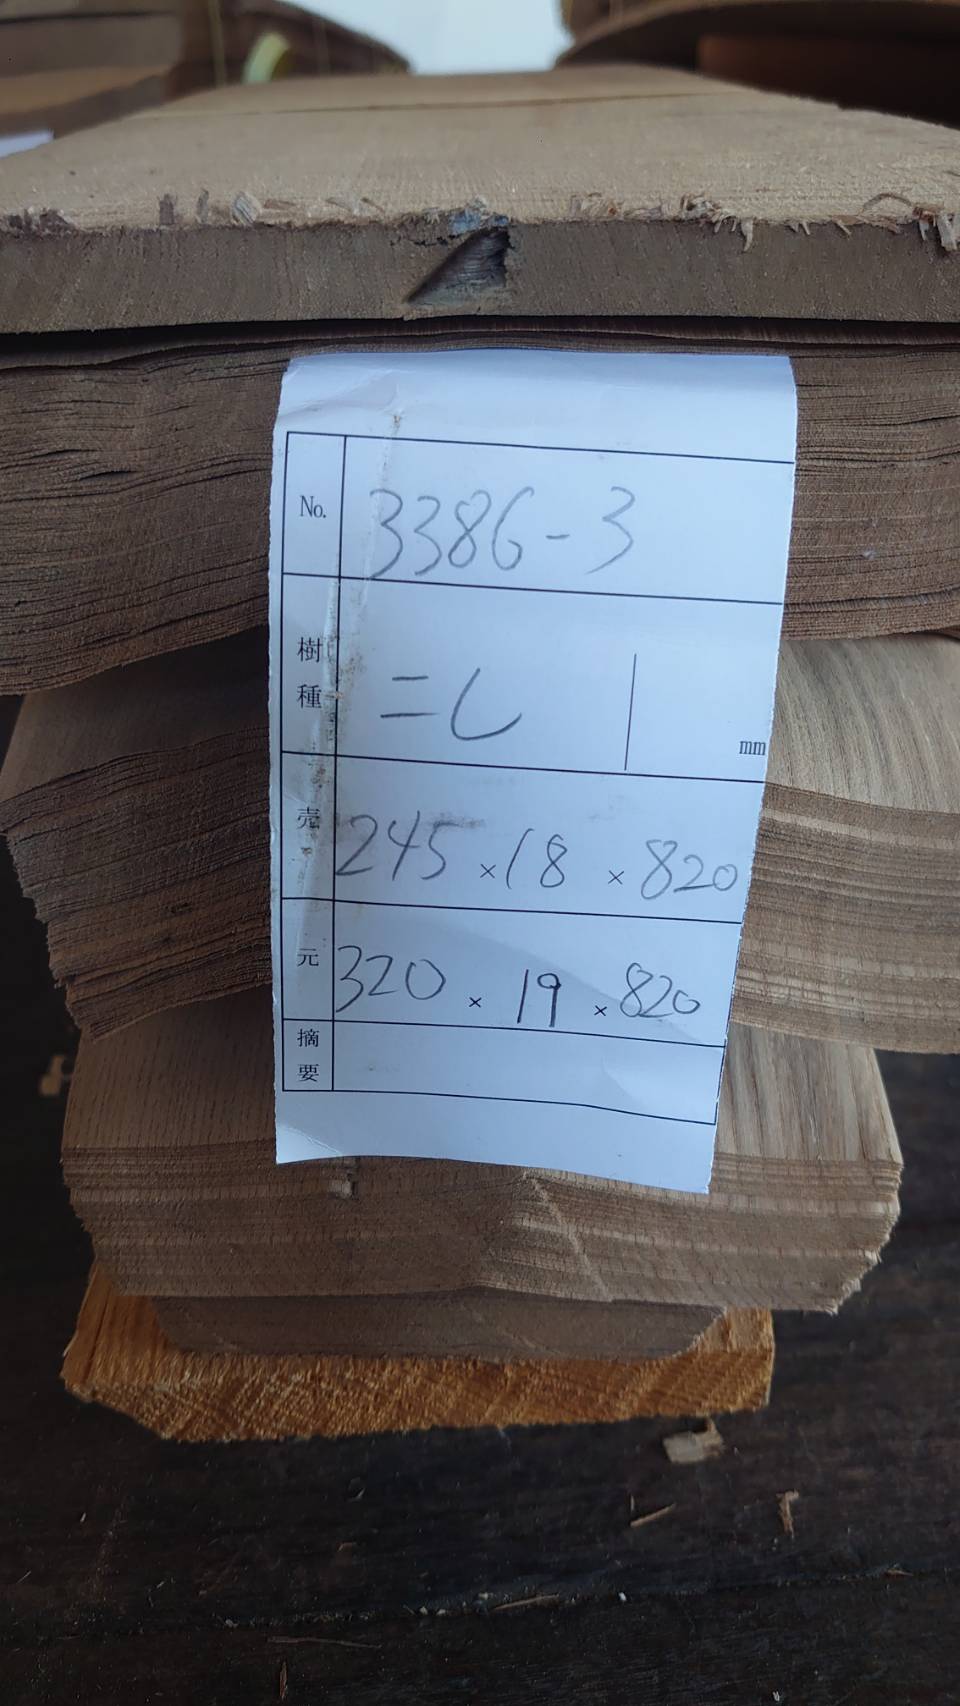 No. 3386-3
樹種 ニレ mm
売 245 × 18 × 820
元 320 × 19 × 820
摘要